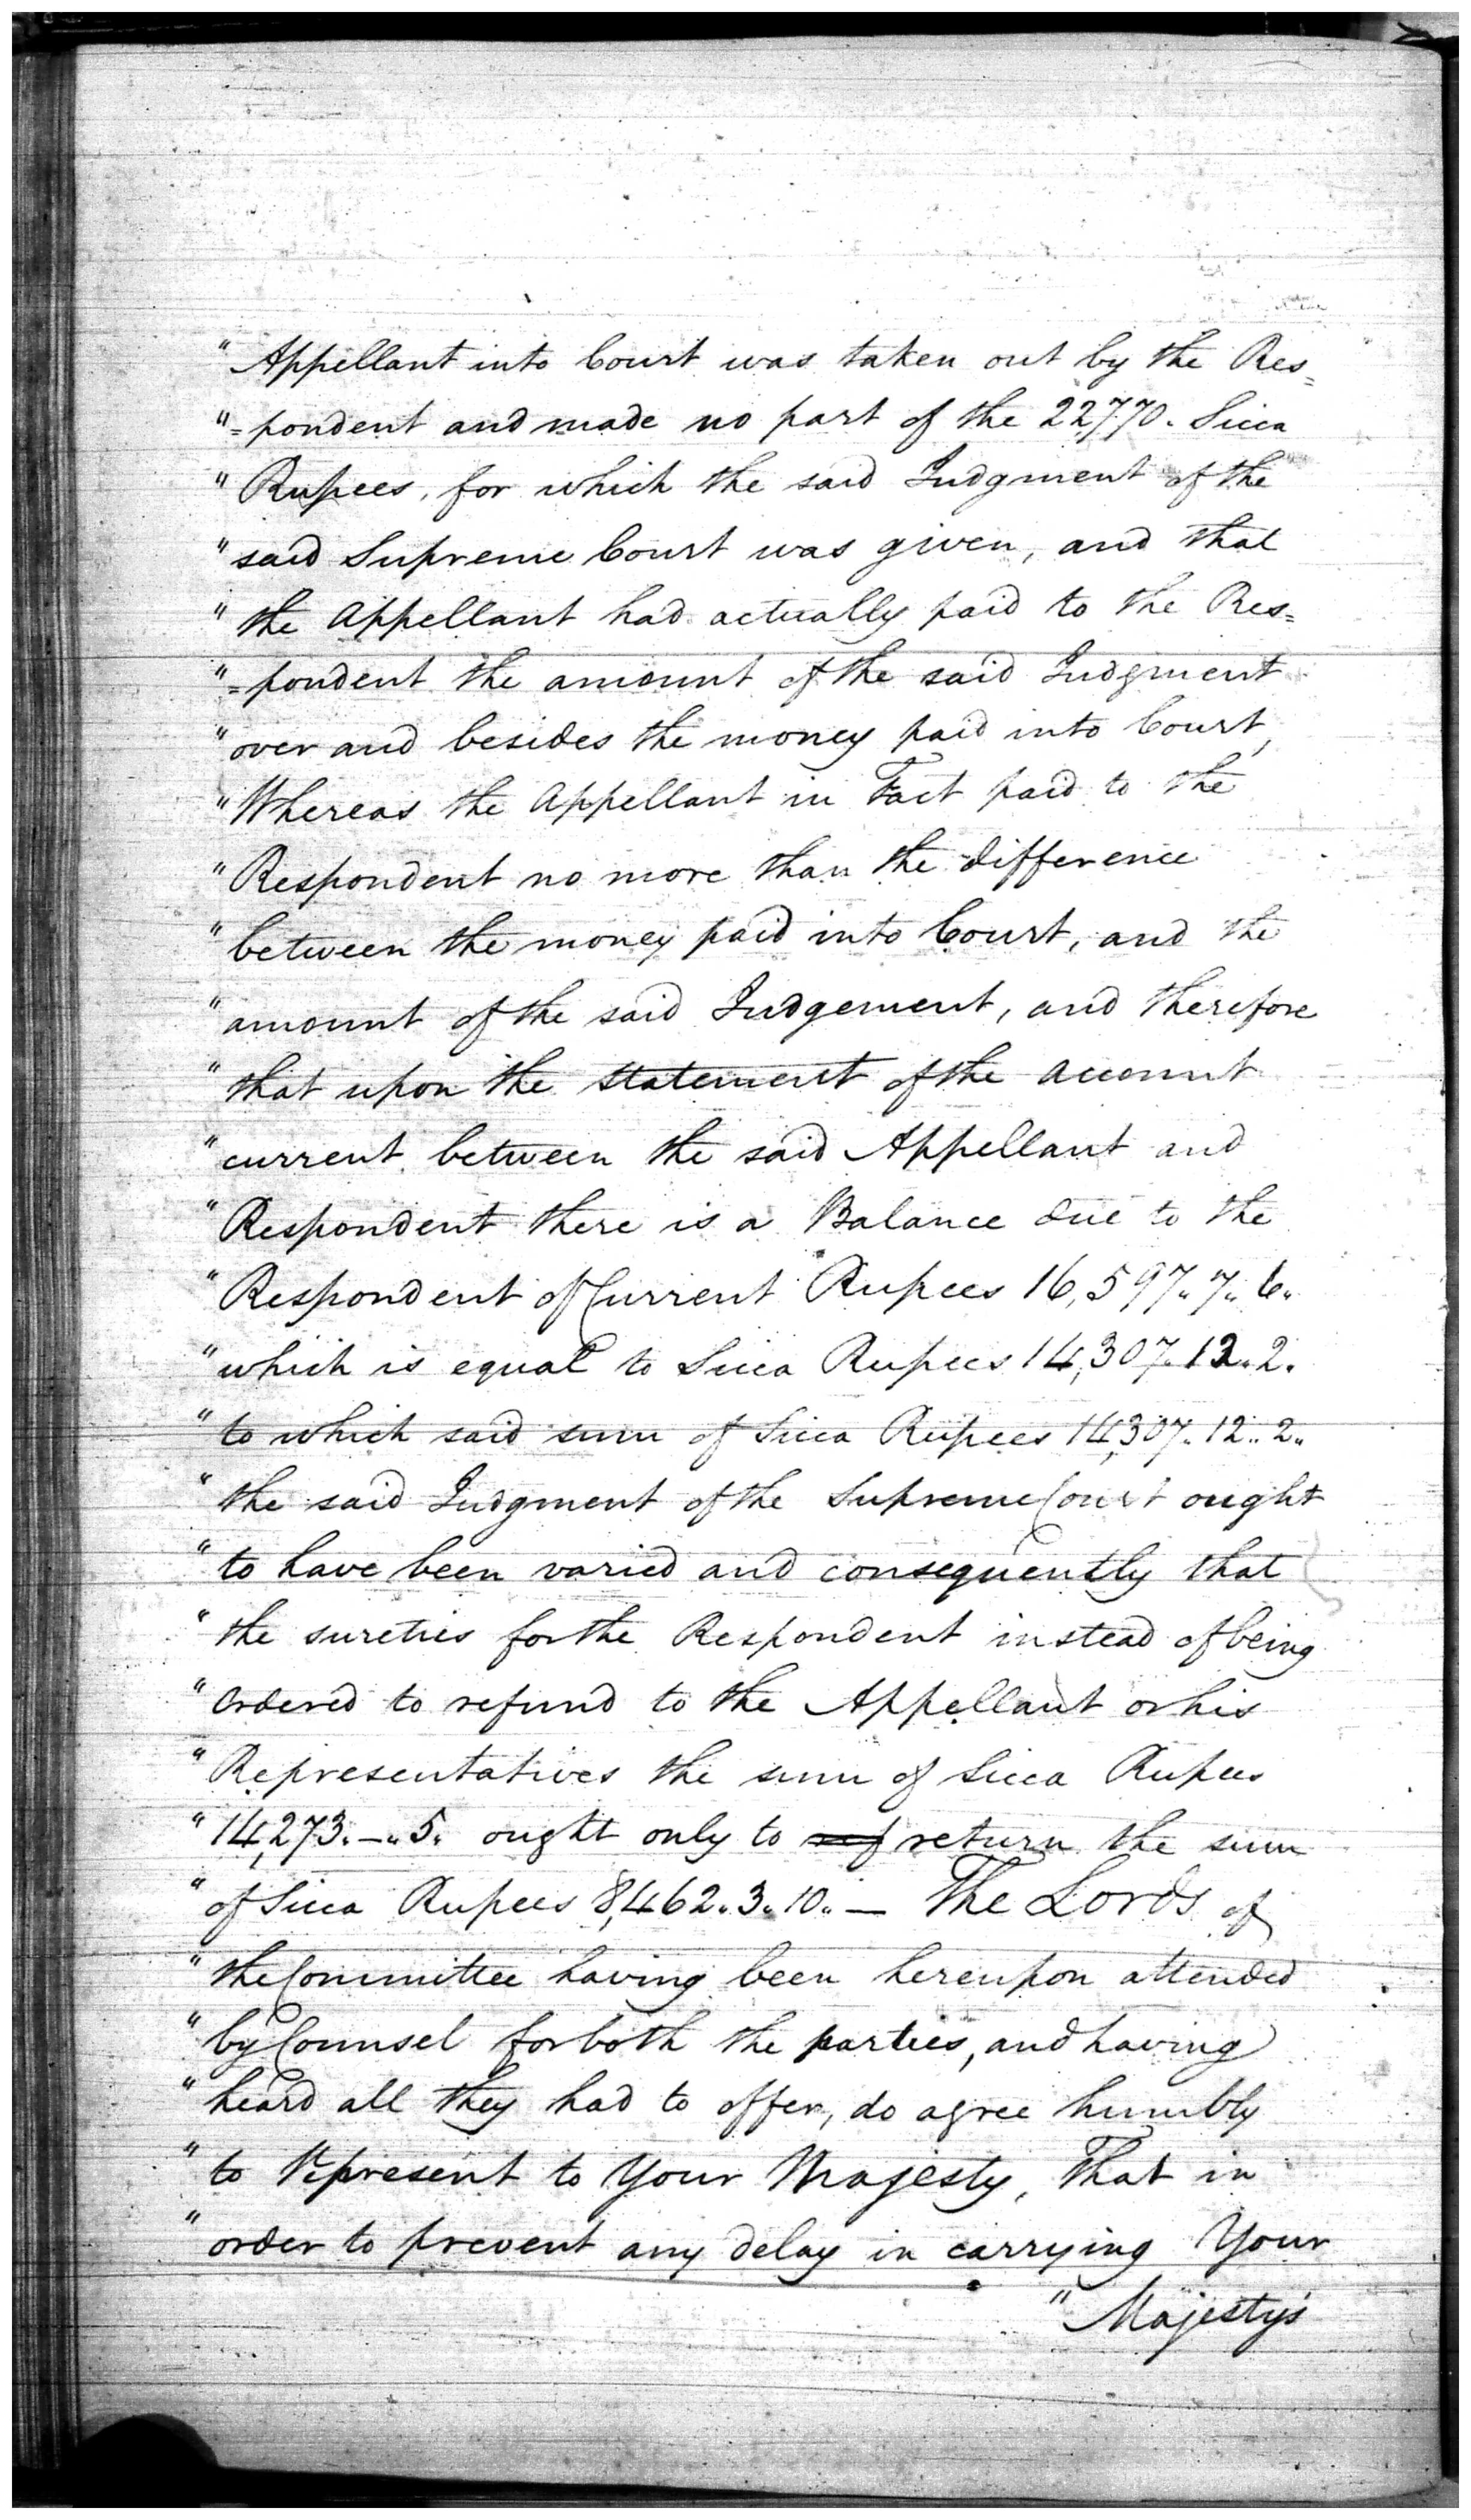 " Appellant into Court was taken out by the Res=
"=pondent and made no part of the 22770. Sicca
" Rupees, for which the said Judgment of the
" said Supreme Court was given, and that
" the Appellant had actually paid to the Res=
"=pondent the amount of the said Judgment
" over and besides the money paid into Court,
" Whereas the Appellant in Fact paid to the
" Respondent no more than the difference
" between the money paid into Court, and the
" amount of the said Judgement, and therefore
" that upon the statement of the account
" current between the said Appellant and
" Respondent there is a Balance due to the
" Respondent of Current Rupees 16,597.. 7.. 6..
" which is equal to Sicca Rupees 14,307.. 12.. 2.
" to which said sum of Sicca Rupees 14,307.. 12.. 2..
" the said Judgment of the Supreme Court ought
" to have been varied and consequently that
" the sureties for the Respondent instead of being
" ordered to refund to the Appellant or his
" Representatives the sum of Sicca Rupees
" 14,273. _.. 5. ought only to ref return the sum
" of Sicca Rupees 8,462.. 3.. 10.. — The Lords of
" the Committee having been hereupon attended
" by Counsel for both the parties, and having
" heard all they had to offer, do agree humbly
" to Represent to Your Majesty, That in
" order to prevent any delay in carrying Your
" Majesty's